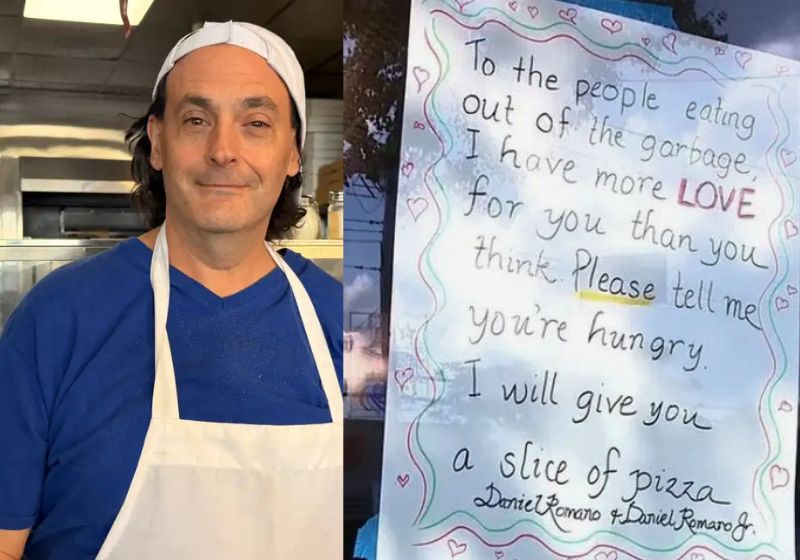 To the people eating
out of the garbage,
I have more LOVE
for you than you
think. Please tell me
you're hungry.
I will give you
a slice of pizza
Daniel Romano + Daniel Romano Jr.